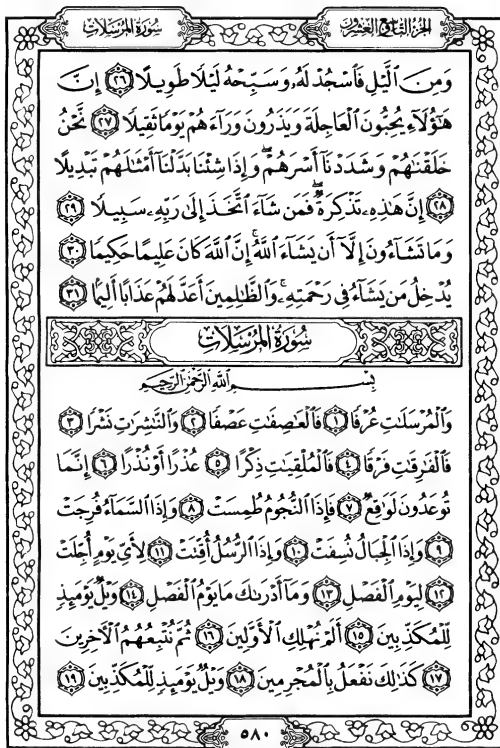 الجزء التاسع والعشرون
سورة المرسلات
وَمِنَ ٱلَّيْلِ فَٱسْجُدْ لَهُۥ وَسَبِّحْهُ لَيْلًا طَوِيلًا ٢٦ إِنَّ
هَٰٓؤُلَآءِ يُحِبُّونَ ٱلْعَاجِلَةَ وَيَذَرُونَ وَرَآءَهُمْ يَوْمًا ثَقِيلًا ٢٧ نَّحْنُ
خَلَقْنَٰهُمْ وَشَدَدْنَآ أَسْرَهُمْ ۖ وَإِذَا شِئْنَا بَدَّلْنَآ أَمْثَٰلَهُمْ تَبْدِيلًا
٢٨ إِنَّ هَٰذِهِۦ تَذْكِرَةٌ ۖ فَمَن شَآءَ ٱتَّخَذَ إِلَىٰ رَبِّهِۦ سَبِيلًا ٢٩
وَمَا تَشَآءُونَ إِلَّآ أَن يَشَآءَ ٱللَّهُ ۚ إِنَّ ٱللَّهَ كَانَ عَلِيمًا حَكِيمًا ٣٠
يُدْخِلُ مَن يَشَآءُ فِى رَحْمَتِهِۦ ۚ وَٱلظَّٰلِمِينَ أَعَدَّ لَهُمْ عَذَابًا أَلِيمًۢا ٣١
سُورَةُ الْمُرْسَلَاتِ
بِسْمِ ٱللَّهِ ٱلرَّحْمَٰنِ ٱلرَّحِيمِ
وَٱلْمُرْسَلَٰتِ عُرْفًا ١ فَٱلْعَٰصِفَٰتِ عَصْفًا ٢ وَٱلنَّٰشِرَٰتِ نَشْرًا ٣
فَٱلْفَٰرِقَٰتِ فَرْقًا ٤ فَٱلْمُلْقِيَٰتِ ذِكْرًا ٥ عُذْرًا أَوْ نُذْرًا ٦ إِنَّمَا
تُوعَدُونَ لَوَٰقِعٌ ٧ فَإِذَا ٱلنُّجُومُ طُمِسَتْ ٨ وَإِذَا ٱلسَّمَآءُ فُرِجَتْ
٩ وَإِذَا ٱلْجِبَالُ نُسِفَتْ ١٠ وَإِذَا ٱلرُّسُلُ أُقِّتَتْ ١١ لِأَىِّ يَوْمٍ أُجِّلَتْ
١٢ لِيَوْمِ ٱلْفَصْلِ ١٣ وَمَآ أَدْرَىٰكَ مَا يَوْمُ ٱلْفَصْلِ ١٤ وَيْلٌ يَوْمَئِذٍ
لِّلْمُكَذِّبِينَ ١٥ أَلَمْ نُهْلِكِ ٱلْأَوَّلِينَ ١٦ ثُمَّ نُتْبِعُهُمُ ٱلْءَاخِرِينَ
١٧ كَذَٰلِكَ نَفْعَلُ بِٱلْمُجْرِمِينَ ١٨ وَيْلٌ يَوْمَئِذٍ لِّلْمُكَذِّبِينَ ١٩
٥٨٠